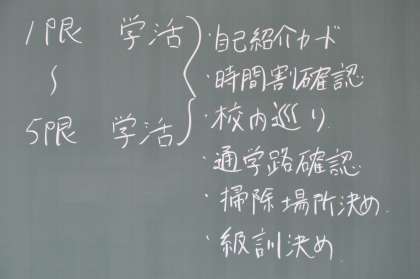 1限 学活
〜
5限 学活
・自己紹介カード
・時間割確認
・校内巡り
・通学路確認
・掃除場所決め
・級訓決め